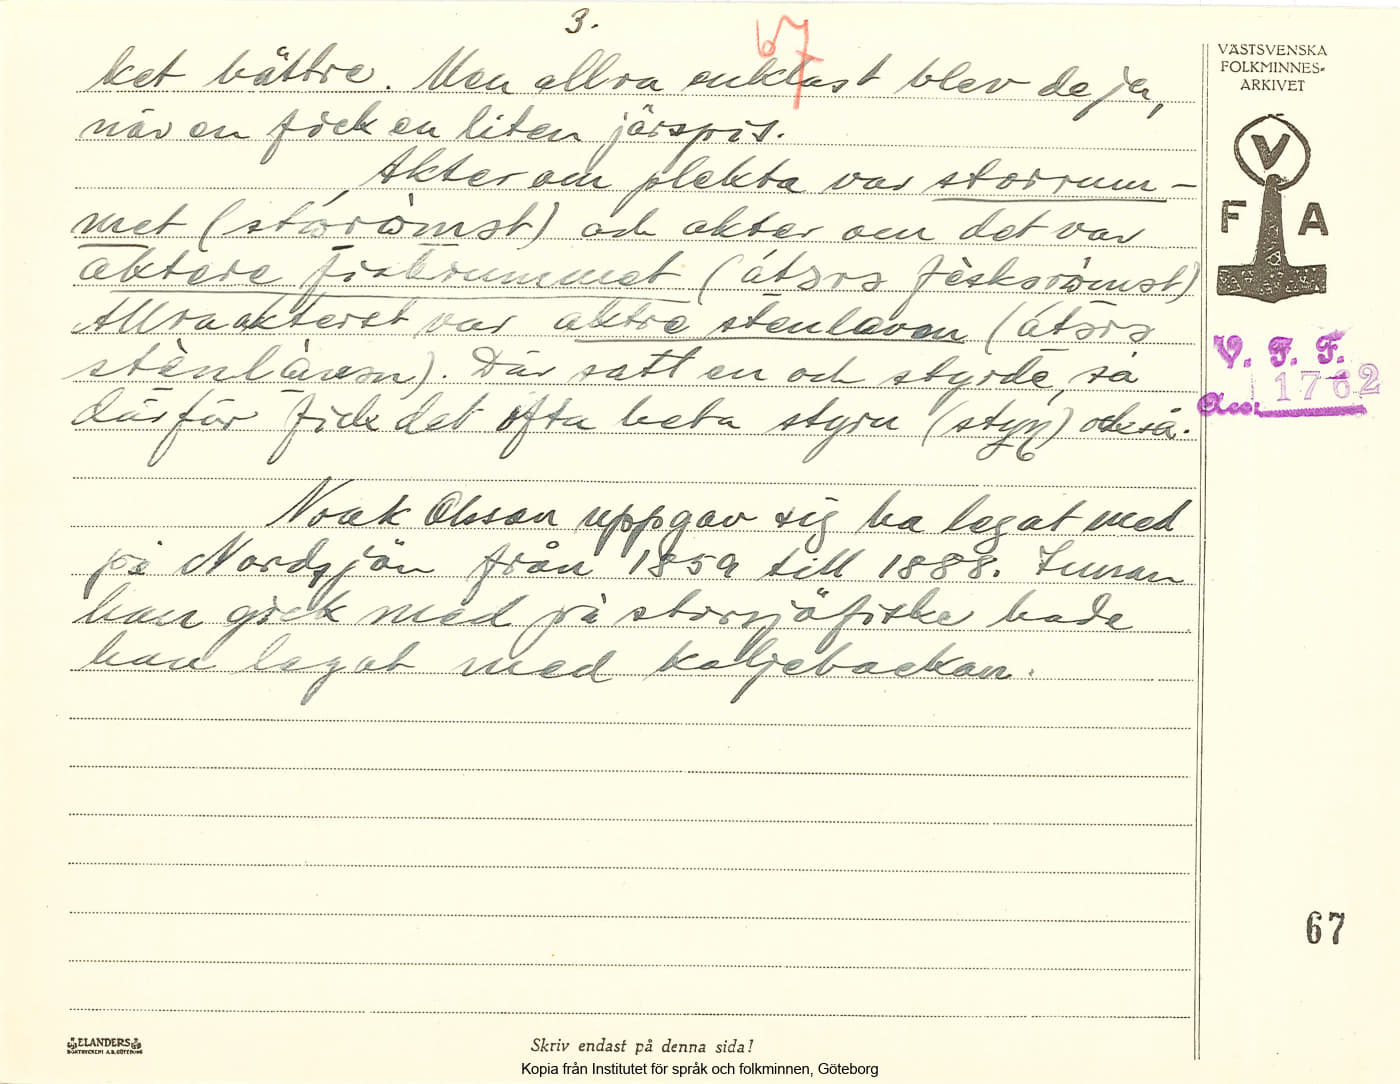 3.
67
ket bättre. Men allra enklast blev de ju,
när en fick en liten järspis.
Akter om plekta var storrum-
met (stóròmst) och akter om det var
aktere fiskrummet (átərs fèsksròmst)
Allra akterst var aktre stenlaven (átərs
stènlàvən). Där satt en och styrde, så
därför fick det ofta heta styrn (styɳ) också.
Noak Olsson uppgav sig ha legat med
på Nordsjön från 1859 till 1888. Innan
han gick med på storsjöfiske hade
han legat med koljebackan.
VÄSTSVENSKA
FOLKMINNES-
ARKIVET
V
F A
V. F. F.
Acc. 1762
67
ELANDERS
BOKTRYCKERI A.B. GÖTEBORG
Skriv endast på denna sida!
Kopia från Institutet för språk och folkminnen, Göteborg